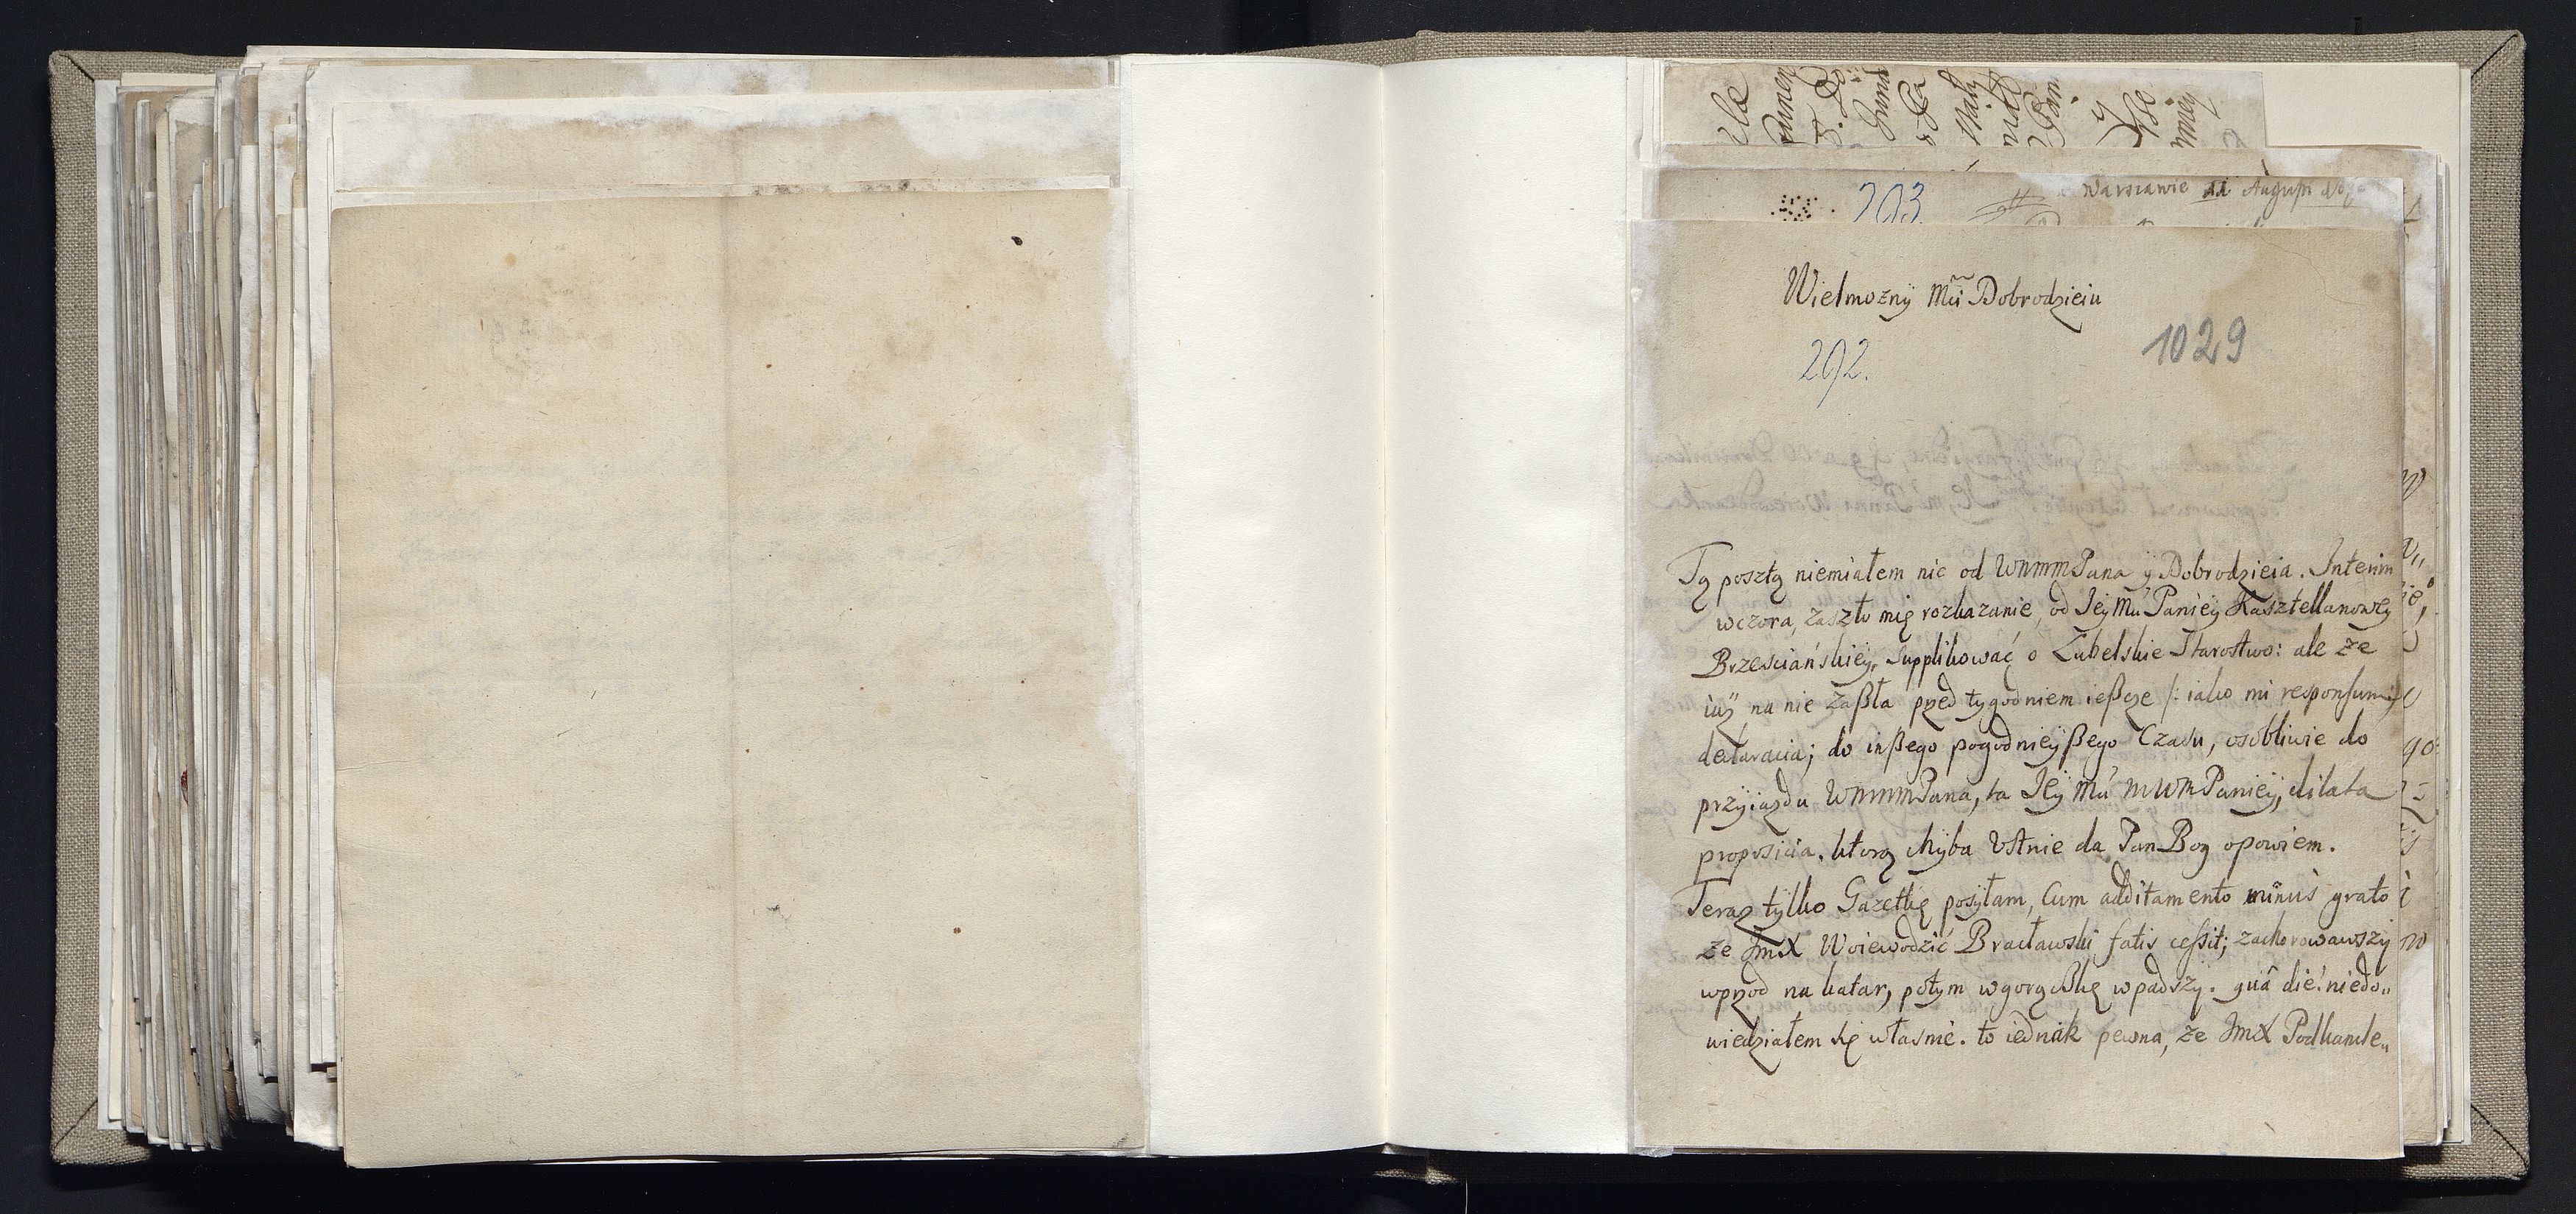 203.
Warszawie 11 Augusti
Wielmozny Mü Dobrodzieiu
292.
1029
Tą posztą niemiałem nic od WMMM Pana ÿ Dobrodzieia. Interim
wczora, zaszło mię rozkazanie, od Jey Mu Paniey Kasztellanowey
Brzesciańskiey, Supplikować o Lubelskie Starostwo: ale ze
iuz na nie zaßła przed tygodniem ießcze /: iako mi responsum :/
declaracia; do inßego pogodnieyßego Czasu, osobliwie do
przyiazdu WMMM Pana, ta Jey Mu MWM Paniey, dilata
proposicia. ktorą chyba Ustnie da Pan Bog opowiem.
Teraz tylko Gazetkę posyłam, Cum additamento minus grato
ze JmX Woiewodzić Bracławski fatis ceßit; zachorowawszy
wprzod na katar, potym w gorączkę wpadszy. quâ die? niedo„
wiedziałem się własnie. to iednak pewna, ze JmX Podkancle„